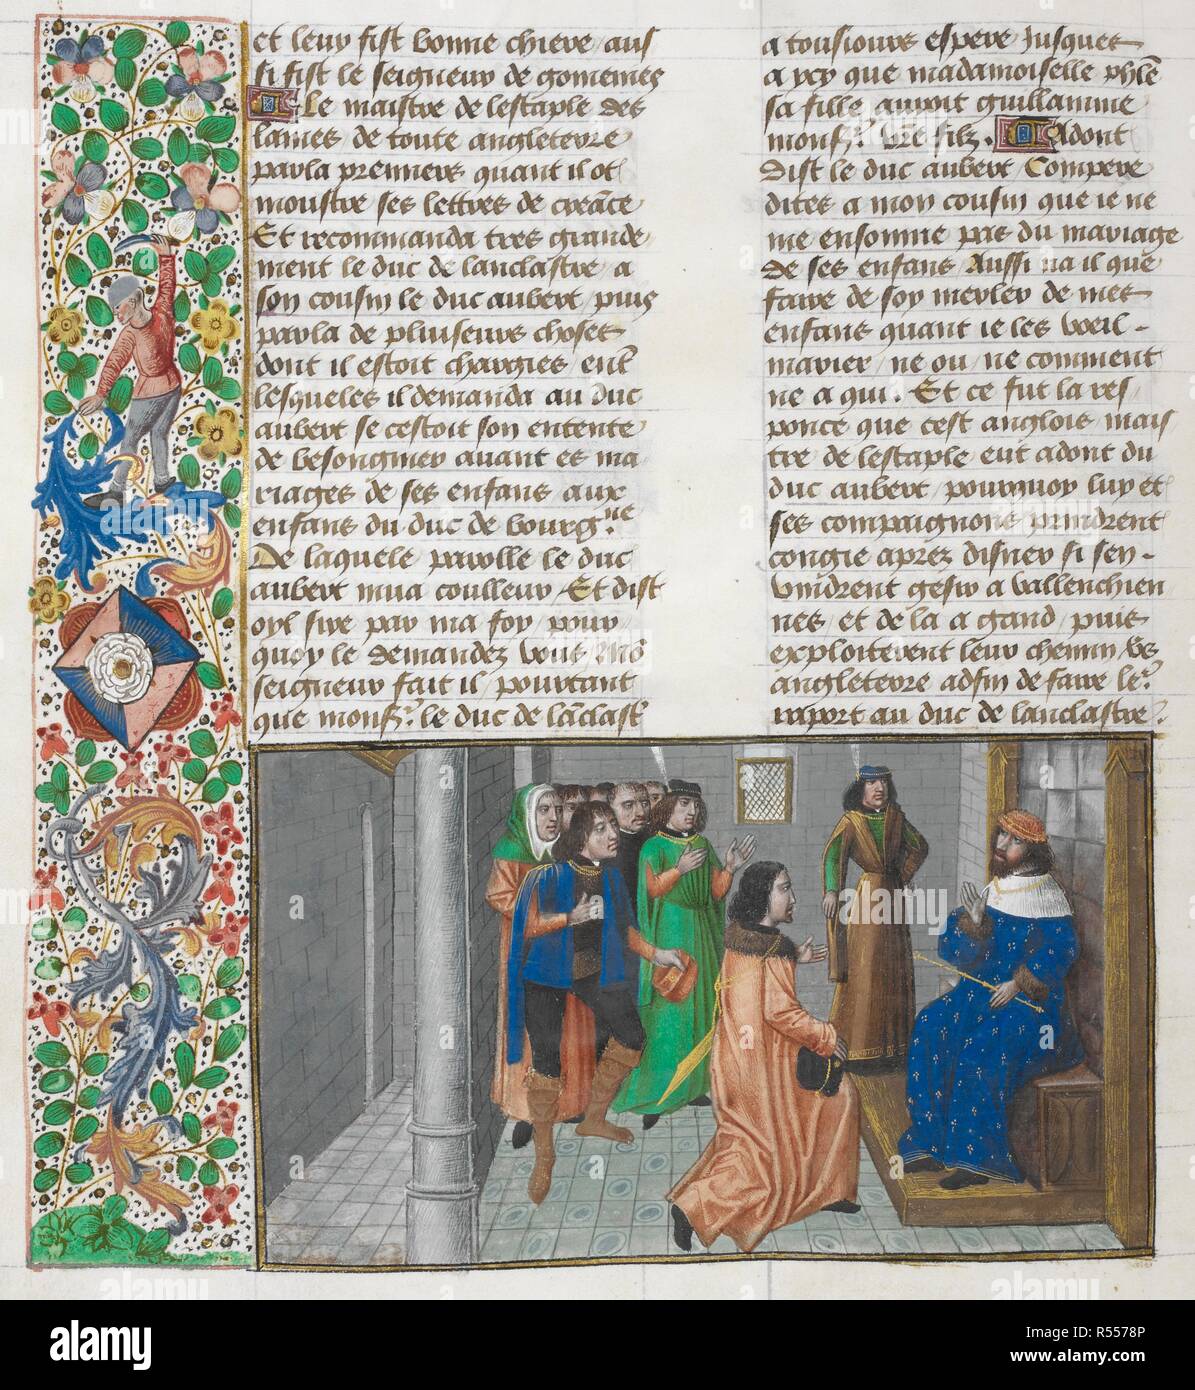 et leur fist bonne chiere / aus
si fist le seigneur de gomeines
Le maistre de lestaple des
laines de toute angleterre
parla premiers quant il ot
moustre ses lettres de creāce
Et recommanda tres grande
ment le duc de lanclastre / a
son cousin le duc aubert / puis
parla de pluiseurs choses
dont il estoit chargies / ent̄
lesqueles il demanda au duc
aubert se cestoit son entente
de besongnier auant es ma
riages de ses enfans aux
enfans du duc de bourg.ne
De laquele parolle le duc
aubert mua coulleur / Et dist
oyl sire par ma foy / pour
quoy le demandez vous / Mō
seigneur fait il / pourtant
que monsr. le duc de lāclastr̄
a tousiours espere Jusques
a ycy que madamoiselle phlē
sa fille auroit guillamme
monsr. vr̄e filz. Adont
Dist le duc aubert Compere
dites a moy cousin que ie ne
me ensonnie pas du mariage
de ses enfans Aussi na il que
faire de soy mesler de mes
enfans quant ie les voeil-
marier / ne ou / ne comment
ne a qui. Et ce fut la res
ponce que cest anglois / mais
tre de lestaple eut adont du
duc aubert / pourquoy luy et
ses compaignons prindrent
congie apres disner si sen-
vindrent gesir a vallenchien
nes / et de la a gand / puis
exploiterent leur chemin / vs̄
angleterre adfin de faire le^r.
raport au duc de lanclastre.
alamy
a
R5578P
alamy stock photo
Image ID: R5578P
www.alamy.com